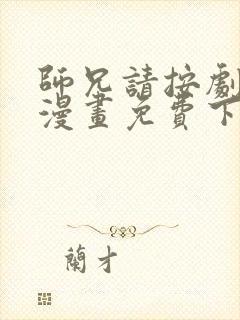 師兄請按劇
漫畫免費下
蘭才